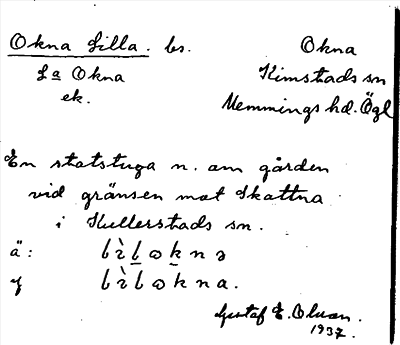 Okna Lilla. bs. Okna
La Okna Kimstads sn
ek. Memmings hd. Ögl
En statstuga n. om gården
vid gränsen mot Skattna
i Kullerstads sn.
ä:
y
Gustaf E. Olsson.
1937.